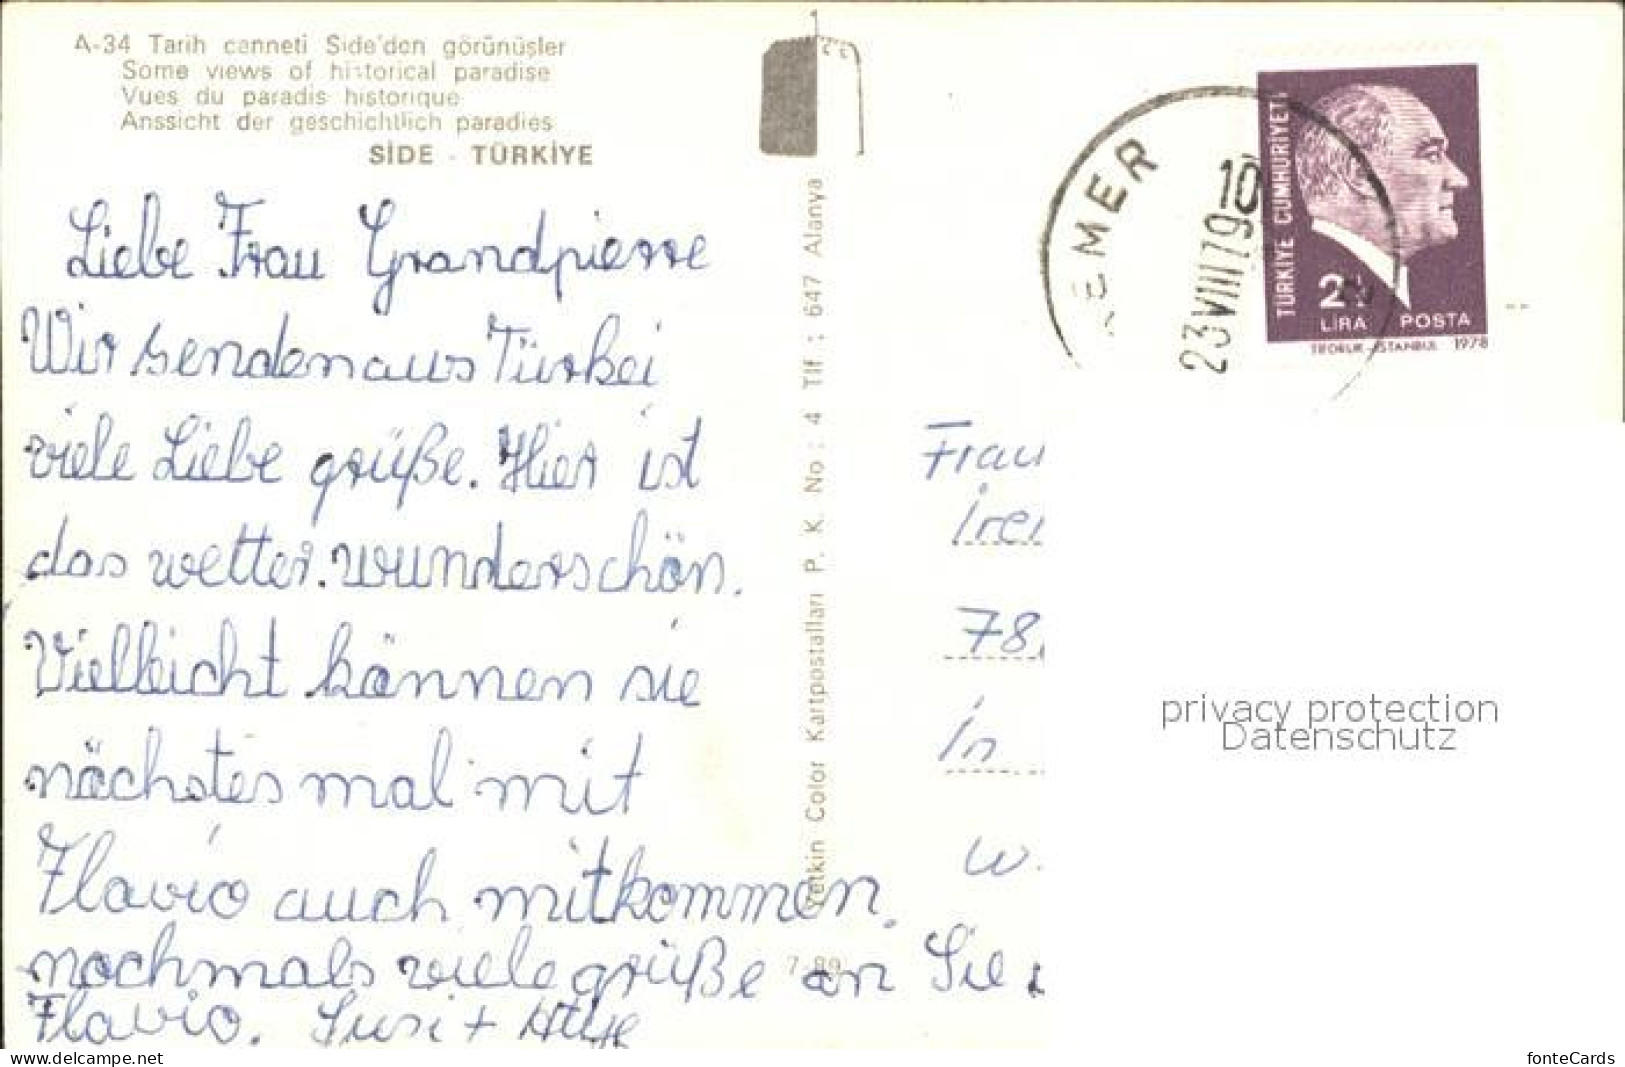 A-34 Tarih canneti Side'den görünüşler
Some views of historical paradise
Vues du paradis historique
Anssicht der geschichtlich paradies
SİDE - TÜRKİYE
Liebe Frau Grandpierre
Wir senden aus Türkei
viele Liebe grüße. Hier ist
das wetter. wunderschön.
Vielleicht können sie
nächstes mal mit
Flavio auch mitkommen.
nochmals viele grüße an Sie
Flavio. Susi +
Yetkin Color Kartpostalları P. K. No : 4 Tlf : 647 Alanya
EMER
10
23 VIII 79
TÜRKİYE CUMHURİYETİ
LİRA POSTA
İSTANBUL 1978
Frau
78
In
w.
privacy protection
Datenschutz
www.delcampe.net
fonteCards